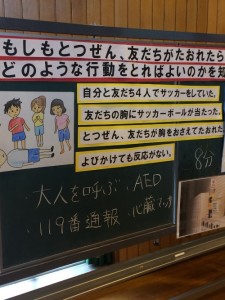 もしもとつぜん、友だちがたおれたら
どのような行動をとればよいのかを知
自分と友だち4人でサッカーをしていた。
友だちの胸にサッカーボールが当たった。
とつぜん、友だちが胸をおさえてたおれた
よびかけても反応がない。
8分
・大人を呼ぶ ・AED
・119番通報 ・心臓マッサ